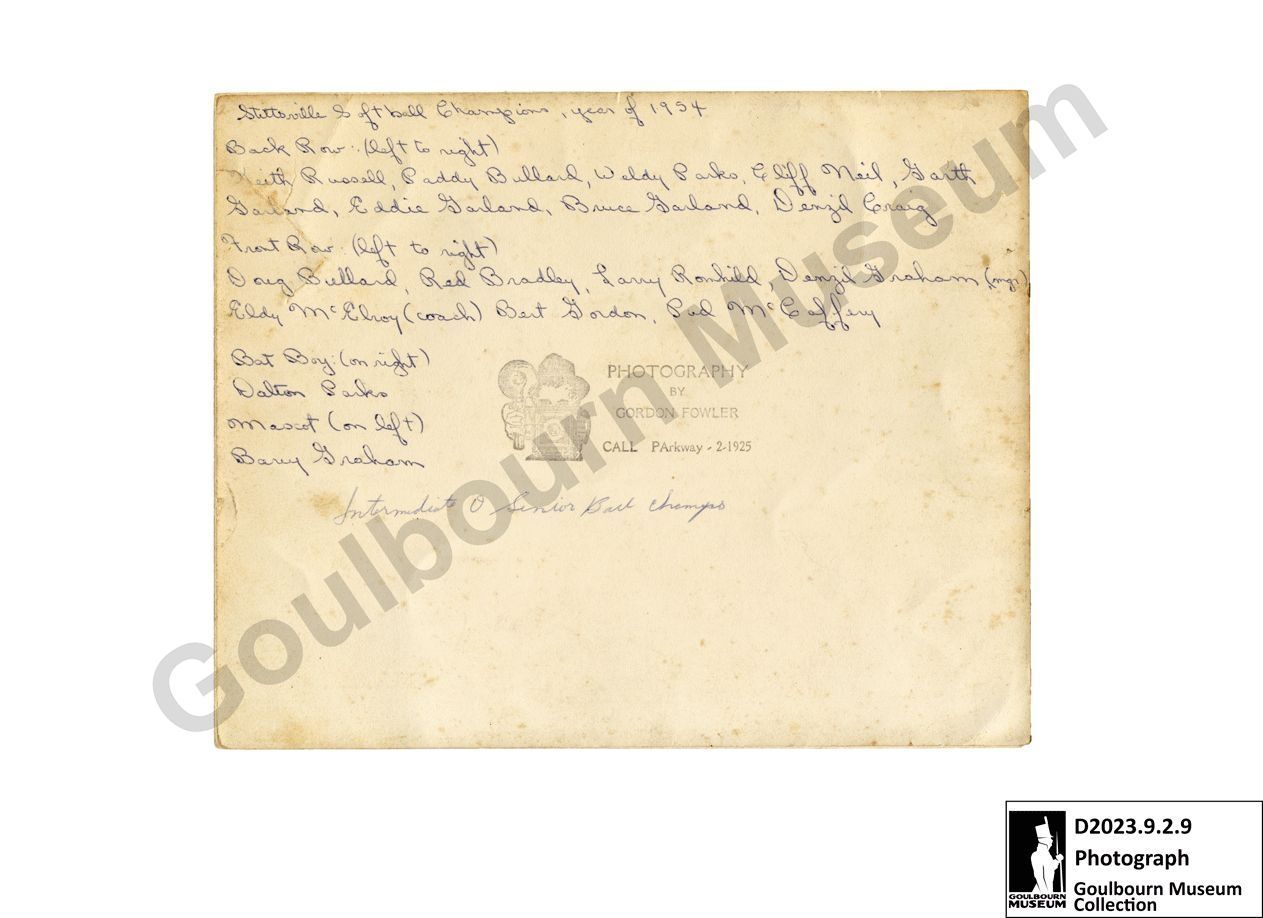 Stittsville Softball Champions, year of 1954
Back Row: (left to right)
Keith Russell, Paddy Bullard, Weldy Parks, Cliff Neil, Garth
Garland, Eddie Garland, Bruce Garland, Denzil Craig
Front Row: (left to right)
Doug Bullard, Red Bradley, Larry Ronhild, Denzil Graham (mgr)
Eldy McElroy (coach) Bert Gordon, Pud McCaffery
Bat Boy: (on right)
Dalton Parks
Mascot (on left)
Barry Graham
PHOTOGRAPHY
BY
GORDON FOWLER
CALL PArkway - 2-1925
Intermediate O Senior Ball Champs
Goulbourn Museum
D2023.9.2.9
Photograph
Goulbourn Museum
Collection
GOULBOURN
MUSEUM